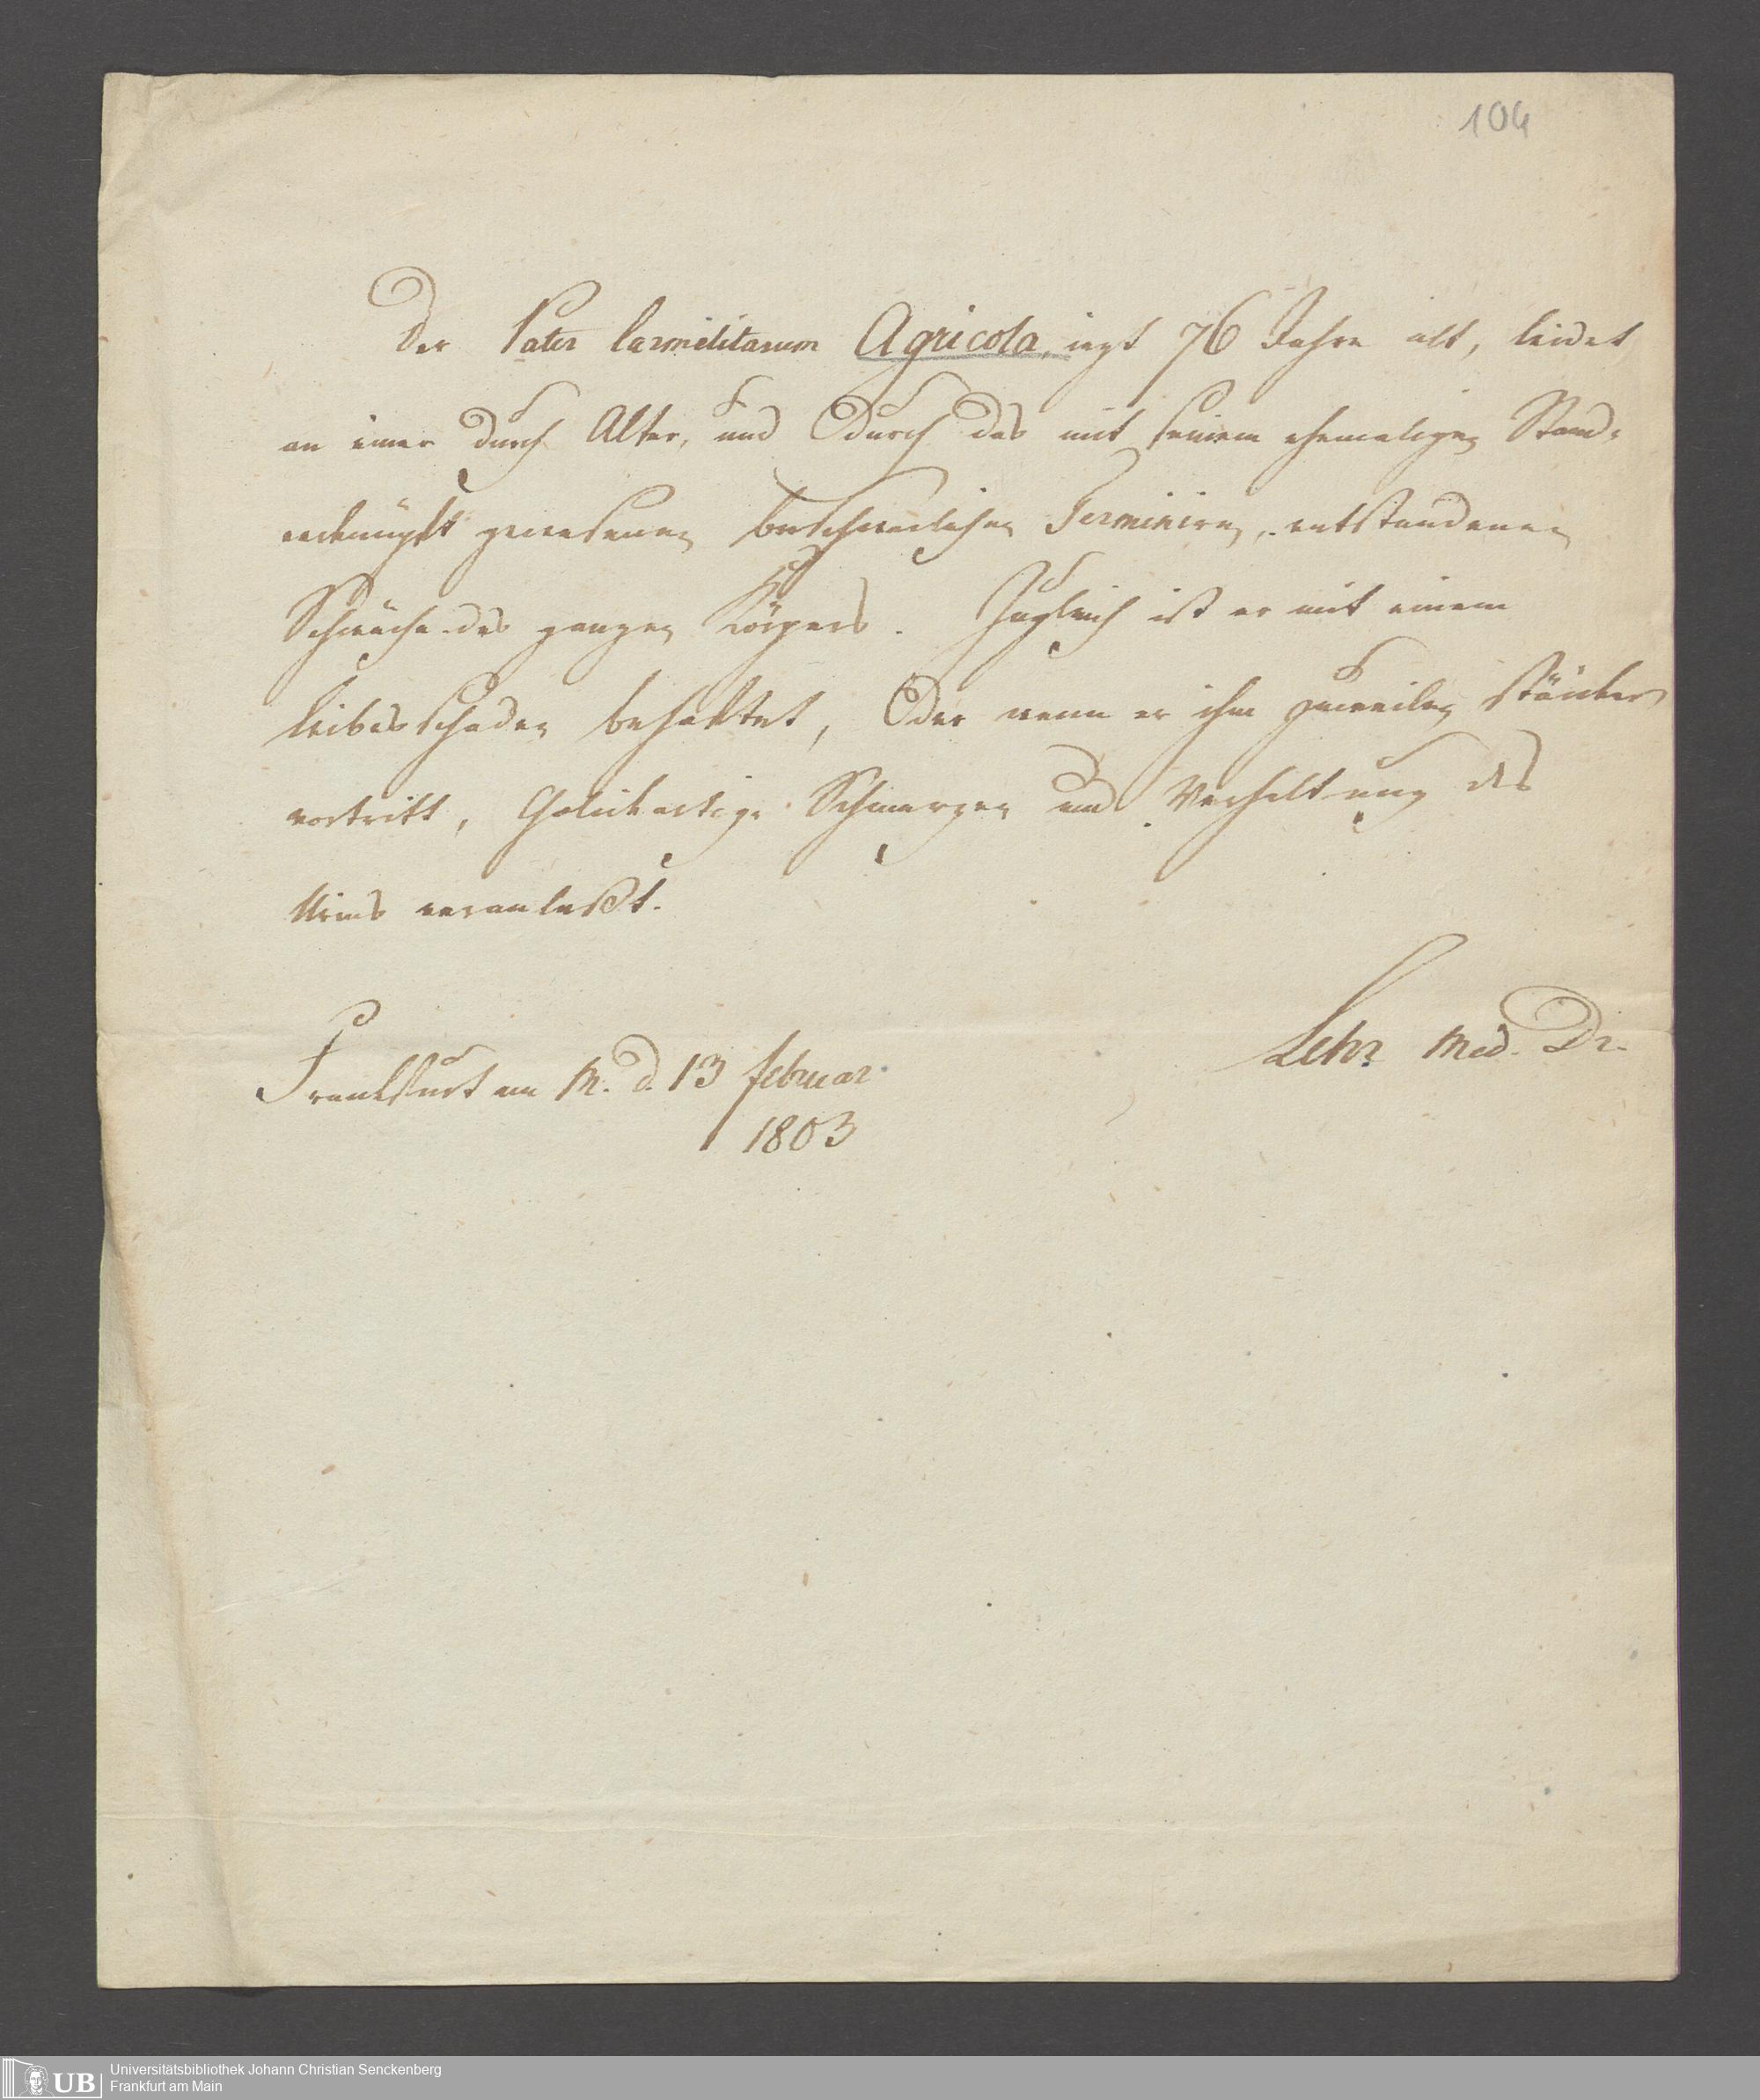 104
Der Pater Carmelitarum Agricola, iezt 76 Jahre alt, leidet
an einer durch Alter, und durch das mit seinem ehemaligen Stand-
verknüpft gewesenen beschwerlichen Terminiren, entstandenen
Schwäche des ganzen Körpers. Zugleich ist er mit einem
Leibesschaden behaftet, der wenn er ihm zuweilen stärker
vortritt, Cholickartige Schmerzen und Verhaltung des
Urins veranlaßt.
Lehr Med. Dr.
Frankfurt am M. d. 13 februar
1803
UB Universitätsbibliothek Johann Christian Senckenberg
Frankfurt am Main